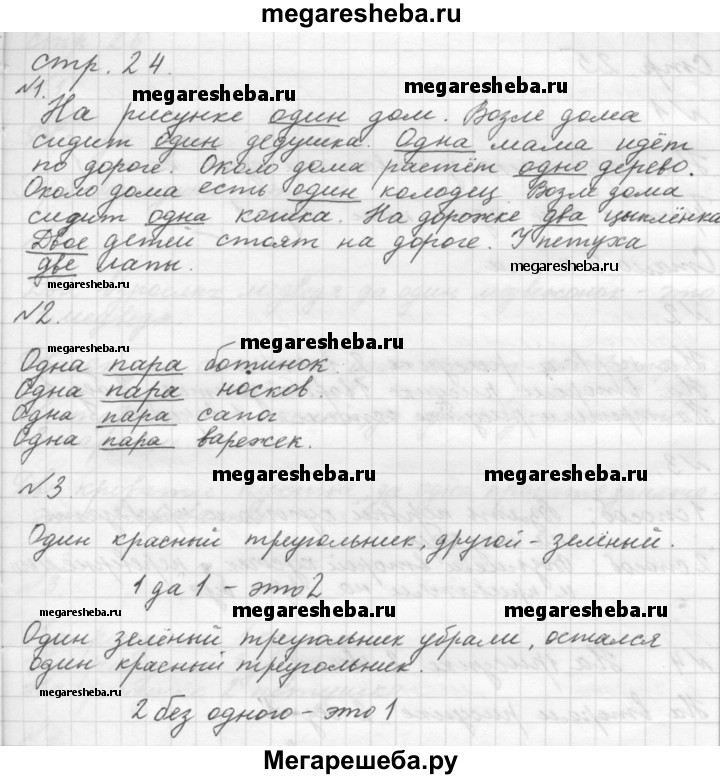 megaresheba.ru
стр. 24.
№1.
megaresheba.ru
megaresheba.ru
На рисунке один дом. Возле дома
сидит один дедушка. Одна мама идёт
по дороге. Около дома растёт одно дерево.
Около дома есть один колодец. Возле дома
сидит одна кошка. На дорожке два цыплёнка
Двое детей стоят на дороге. У петуха
две лапы.
megaresheba.ru
megaresheba.ru
№2.
megaresheba.ru
megaresheba.ru
megaresheba.ru
Одна пара ботинок.
Одна пара носков.
Одна пара сапог
Одна пара варежек.
№3
megaresheba.ru
megaresheba.ru
Один красный треугольник, другой - зелёный.
1 да 1 - это 2
megaresheba.ru
megaresheba.ru
Один зелёный треугольник убрали, остался
один красный треугольник.
megaresheba.ru
2 без одного - это 1
megaresheba.ru
Мегарешеба.ру